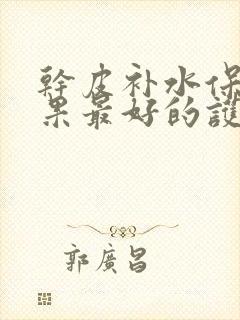 幹皮补水保
果最好的護
郭廣昌